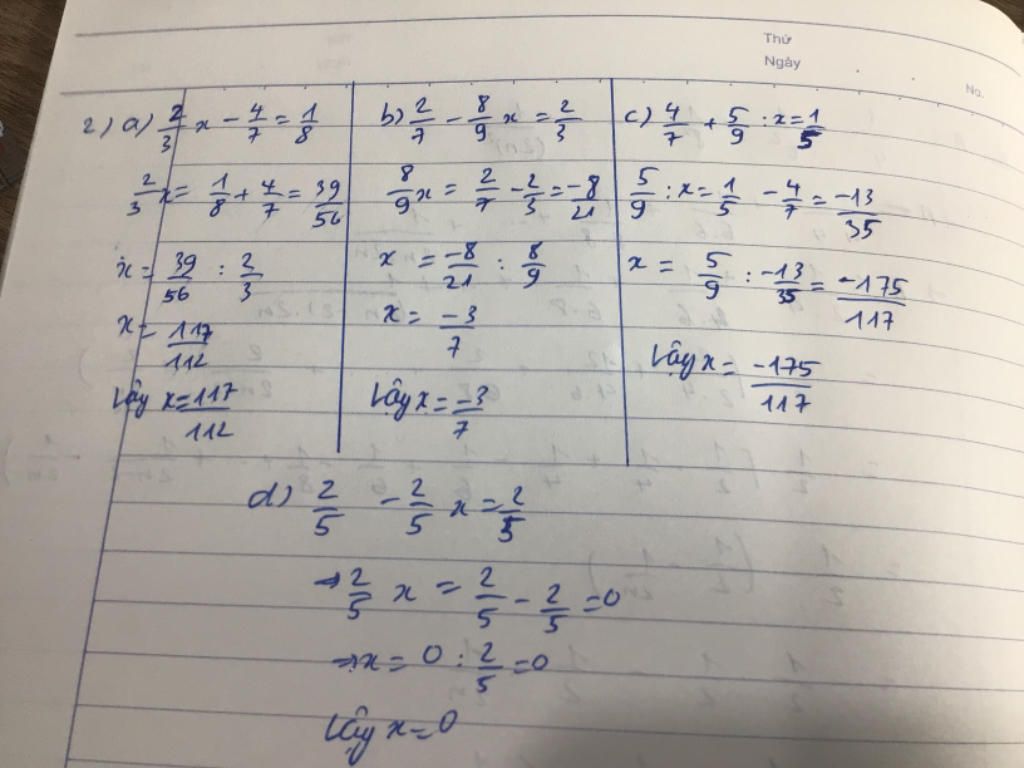 Thứ
Ngày
No.
2) a) 2/3 x - 4/7 = 1/8
2/3 x = 1/8 + 4/7 = 39/56
x = 39/56 : 2/3
x = 117/112
Vậy x = 117/112
b) 2/7 - 8/9 x = 2/3
8/9 x = 2/7 - 2/3 = -8/21
x = -8/21 : 8/9
x = -3/7
Vậy x = -3/7
c) 4/7 + 5/9 : x = 1/5
5/9 : x = 1/5 - 4/7 = -13/35
x = 5/9 : -13/35 = -175/117
Vậy x = -175/117
d) 2/5 - 2/5 x = 2/5
→ 2/5 x = 2/5 - 2/5 = 0
→ x = 0 : 2/5 = 0
Vậy x = 0